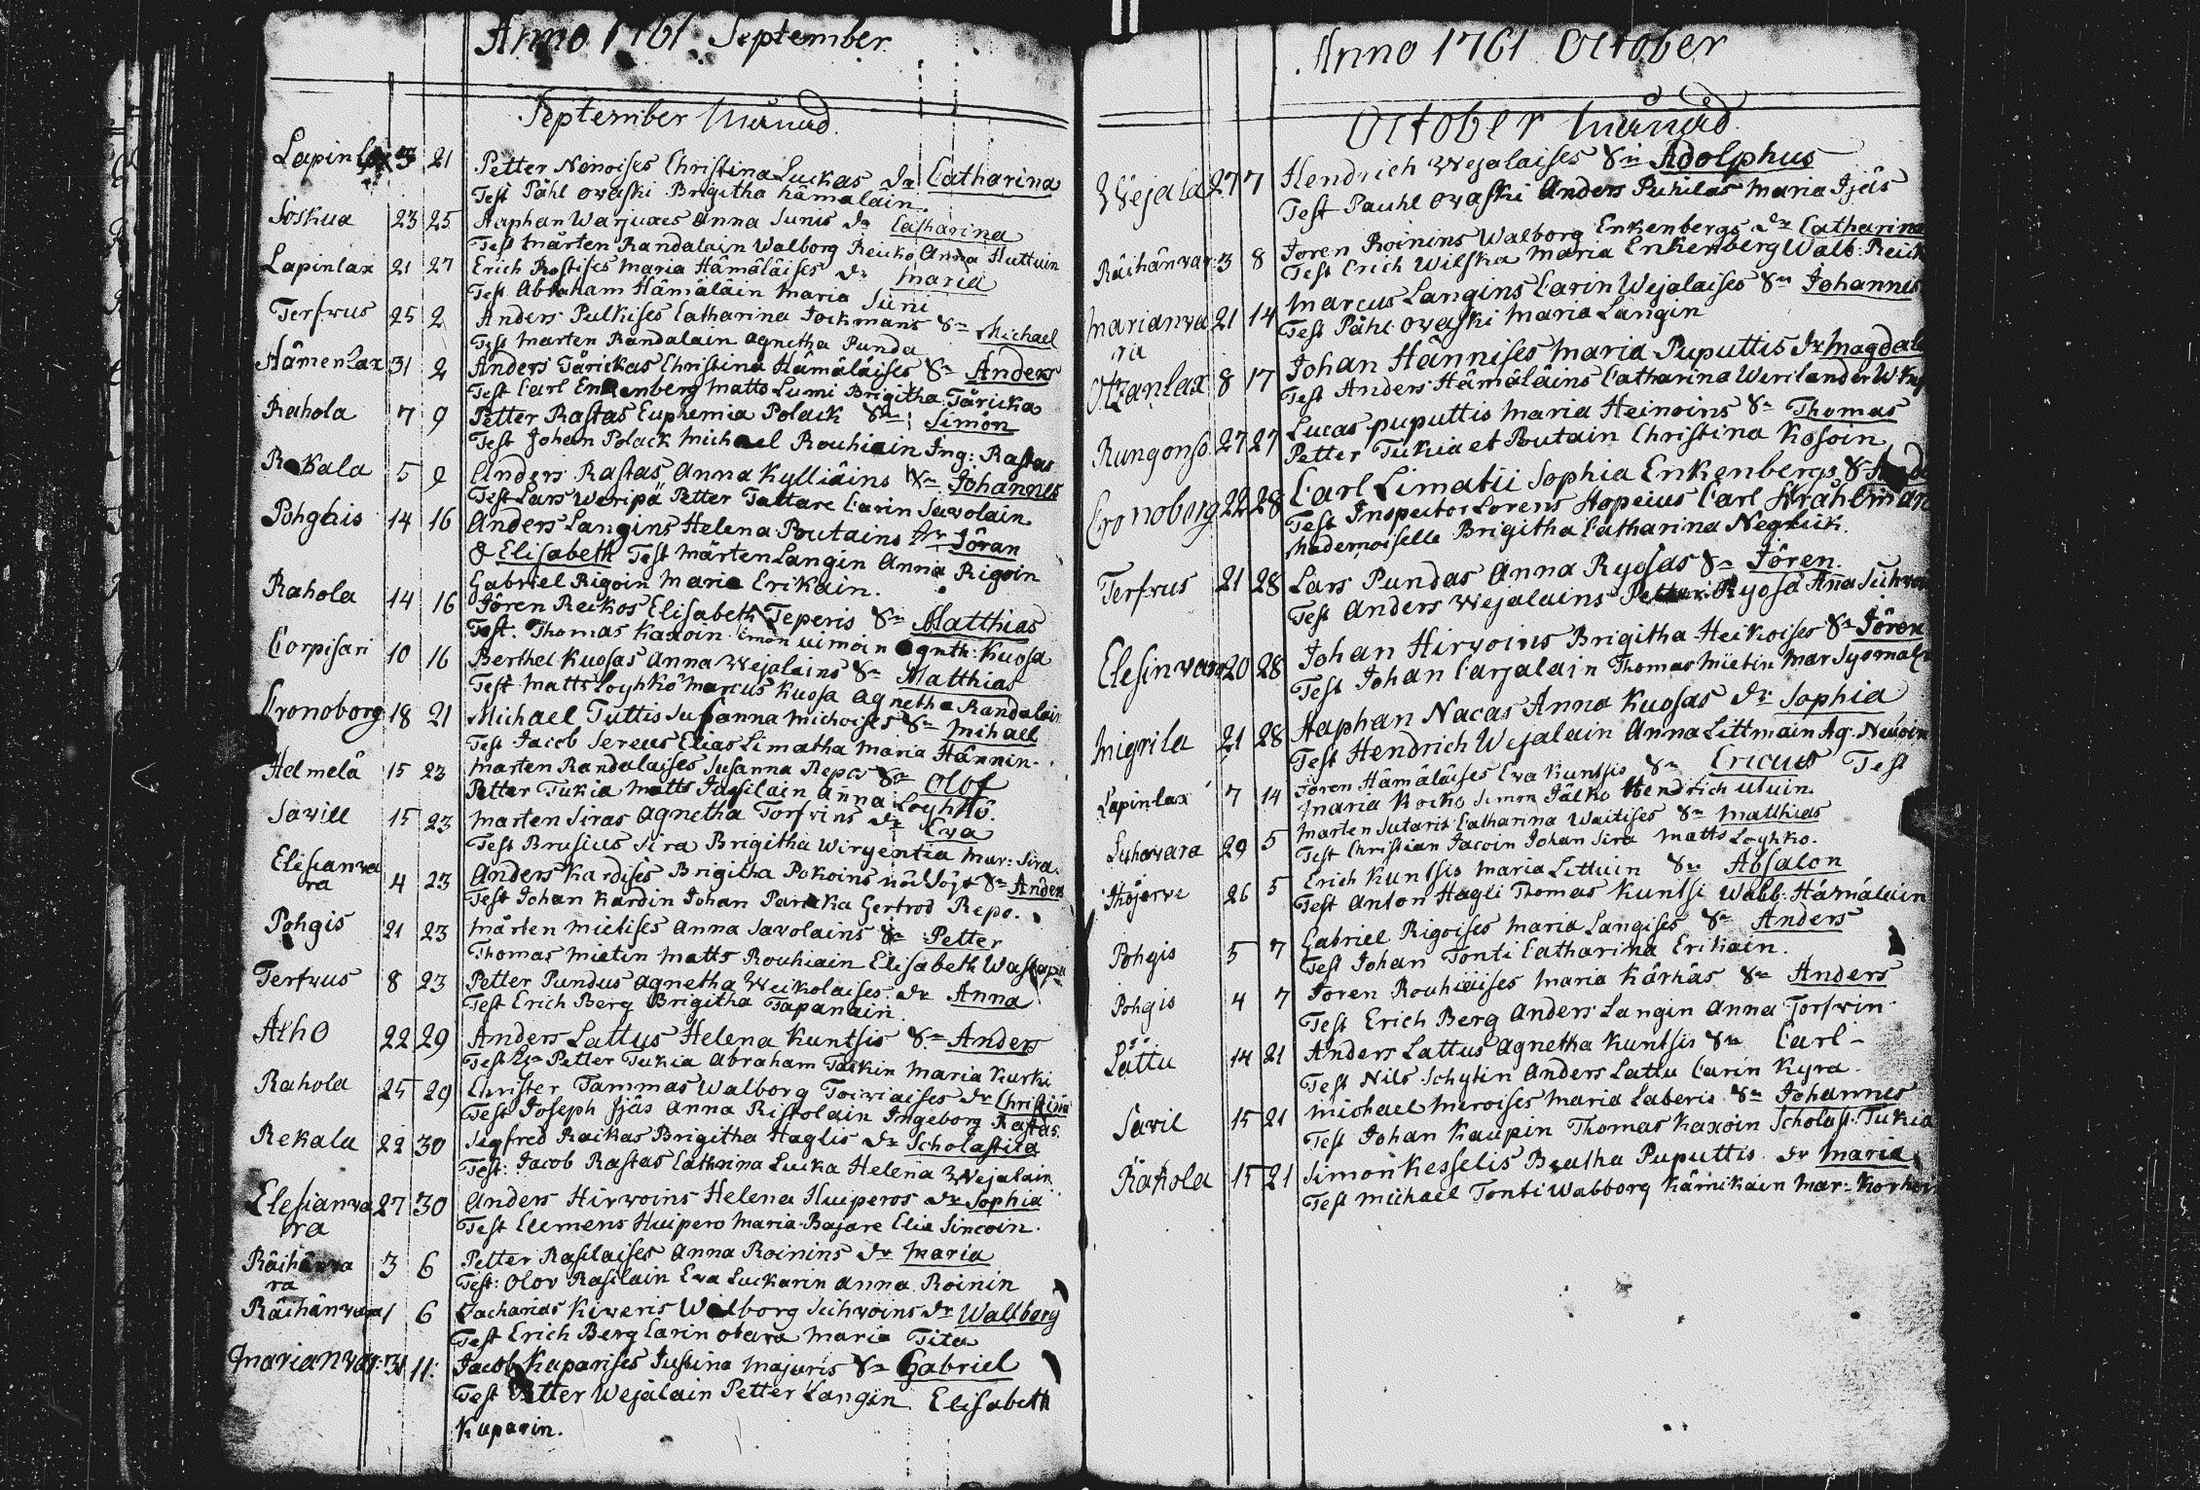 Anno 1761 September
September Månad.
Lapinlax 3 21 Petter Nenoises Christina Luckas Dr Catharina
Test Påhl Owaski Brigitha hämäläin.
Soskua 23 25 Staphan Warjuxes Anna Sunis Dr Catharina
Test Mårten Randalain Walborg Reiko Anna Huttuin
Lapinlax 21 27 Erich Rostises Maria Hämäläises Dr Maria
Test Abraham Hämäläin Maria Suni
Terfwus 25 2 Anders Pulkises Catharina Jockmans Sn Michael
Test Marten Randalain Agnetha Punda
Hämenlax 31 2 Anders Tärickas Christina Hämäläises Sn Anders
Test Carl Enkenberg Matts Lumi Brigitha Täricka
Rahola 7 9 Petter Rastas Euphemia Polack Sn Simon
Test Johan Polack Michael Rouhiain Ing: Rastas
Rekala 5 9 Anders Rastas Anna Kylliäins Sn Johannes
Test Lars Weripä Petter Tattare Carin Savolain
Pohgiis 14 16 Anders Langins Helena Poutains Jöran
& Elisabeth Test Mårten Langin Anna Rigoin
Gabriel Rigoin Maria Erikain.
Rahola 14 16 Jören Reikos Elisabeth Teperis Sn Matthias
Test. Thomas Kaxoin Simon uimoin Agnth: Kuosa
Corpisari 10 16 Berthel Kuosas Anna Wejalains Sn Matthias
Test Matts Loyhkö Marcus Kuosa Agnetha Randalain
Cronoborg 18 21 Michael Tuttis Susanna Michoises Sn Mihael
Test Jacob Sereus Elias Limatha Maria Hännin.
Helmelä 15 23 Marten Randalaises Susanna Repos Sn Olof
Petter Tukia Matts Jussilain Anna Loyhkö.
Savill 15 23 Marten Siras Agnetha Torfvins Dr Eva
Test Brusius Sira Brigitha Wirgentia Mar: Sira.
Elisianva
ra 4 23 Anders Kardises Brigitha Pokoins Sn Anders
Test Johan Kardin Johan Paricka Gertrod Repo.
Pohgis 21 23 Mårten Mietises Anna Savolains Sn Petter
Thomas Mietin Matts Rouhiain Elisabeth
Terfvus 8 23 Petter Pundus Agnetha Weikolaises Dr Anna
Test Erich Berg Brigitha Tapanain.
Alho 22 29 Anders Lattus Helena Kuntsis Sn Anders
Test Petter Tukia Abraham Taskin Maria Kurki
Rahola 25 29 Christer Tammas Walborg Toiviaises Dr Christina
Test Joseph Ijäs Anna Ristolain Ingeborg Rastas.
Rekala 22 30 Sigfred Raikas Brigitha Haglis Dr Scholastica
Test: Jacob Rastas Cathrina Lucka Helena Wejalain
Elesianva
ra 27 30 Anders Hirvoins Helena Huiperos Dr Sophia
Test Clemens Huipero Maria Bajare Elia Sincoin.
Räihänva
ra 3 6 Petter Rasilaises Anna Roinins Dr Maria
Test: Olov Rasilain Eva Luckarin Anna Roinin
Räihänvara 1 6 Zacharias Kiweris Walborg Siihvoins Dr Wallborg
Test Erich Berg Carin Otava Maria Tita
Marianvar: 31 11: Jacob Kuparises Justina Majuris Sn Gabriel
Test Petter Wejälain Petter Langin Elisabeth
Kuparin.
Anno 1761 October
October Månad.
Wejala 27 7 Hendrich Wejalaises Sn Adolphus
Test Pauhl Owaski Anders Puhilas Maria Ijäs
Räihänvar: 3 8 Joren Roinins Walborg Enkenbergs Dr Catharina
Test Erich Wilska Maria Enkenberg Walb: Reik
Marianva
ra 21 14 Marcus Langins Carin Wejalaises Sn Johannes
Test Påhl Owaski Maria Langin
Otzanlax 8 17 Johan Hännises Maria Puputtis Dr Magdal
Test Anders Hämäläins Catharina Werilander
Rungonso 27 27 Lucas puputtis Maria Heinoins Sn Thomas
Petter Tukia et Poutain Christina Kosoin
Cronoberg 22 28 Carl Limatii Sophia Enkenbergs
Test Inspector Lorens Hopeius Carl Stråhlman
Mademoiselle Brigitha Catharina Neglick.
Terfvus 21 28 Lars Pundas Anna Ryosas Sn Jören.
Test Anders Wejalains Petter Ryosa Anna Siihvo
Elesinvara 20 28 Johan Hirvoins Brigitha Heikoises Sn Jören
Test Johan Carjalain Thomas Mietin Mar
Migrila 21 28 Staphan Nacas Anna Kuosas Dr Sophia
Test Hendrich Wejalain Anna Littmain Ag. Neuoin
Lapinlax 7 14 Jören Hämäläises Eva Kuntsis Sn Ericus Test
Maria Koiko Simon Jälko Hendrich Utuin.
Luhavara 29 5 Marten Sutaris Catharina Waitises Sn Matthias
Test Christian Jacoin Johan Sira Matts Loyhko.
Ihojervi 26 5 Erich Kuntsis Maria Littuin Sn Absalon
Test Anton Hagli Thomas Kuntsi Walb: Hämäläin
Pohgis 5 7 Gabriel Rigoises Maria Langises Sn Anders
Test Johan Tonti Catharina Erikain.
Pohgis 4 7 Joren Rouhiäises Maria Kärhäs Sn Anders
Test Erich Berg Anders Langin Anna Torfvin
Lättu 14 21 Anders Lattus Agnetha Kuntsis Sn Carl -
Test Nils Schytin Anders Lattu Carin Kyra.
Savil 15 21 Michael Meroises Maria Laberis Sn Johannes
Test Johan Kaupin Thomas Kaxoin Scholast: Tukia
Rahola 15 21 Simon Kesselis Beatha Puputtis Dr Maria
Test Michael Tonti Wabborg Kämikäin Mar: Korho